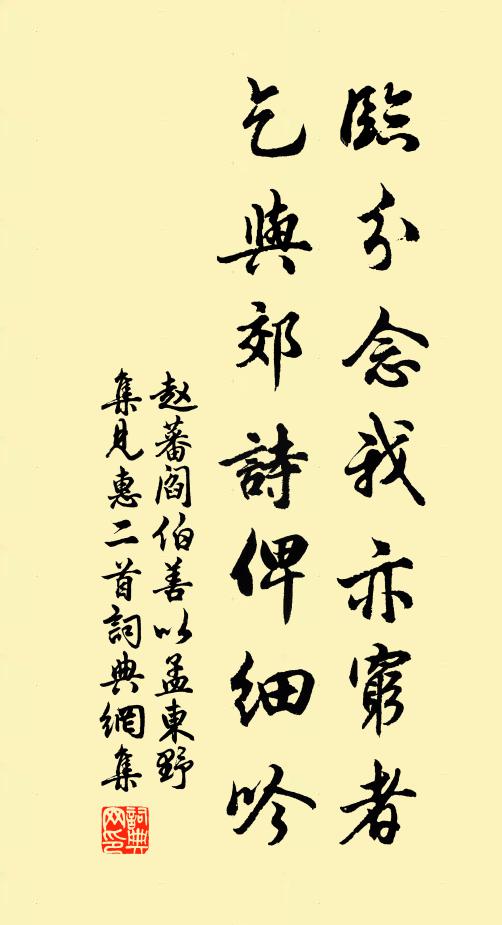 臨分念我亦窮者
乞與郊詩俾細吟
赵蕃阎伯善以孟東野
集見惠二首詞典網集
詞典
网印